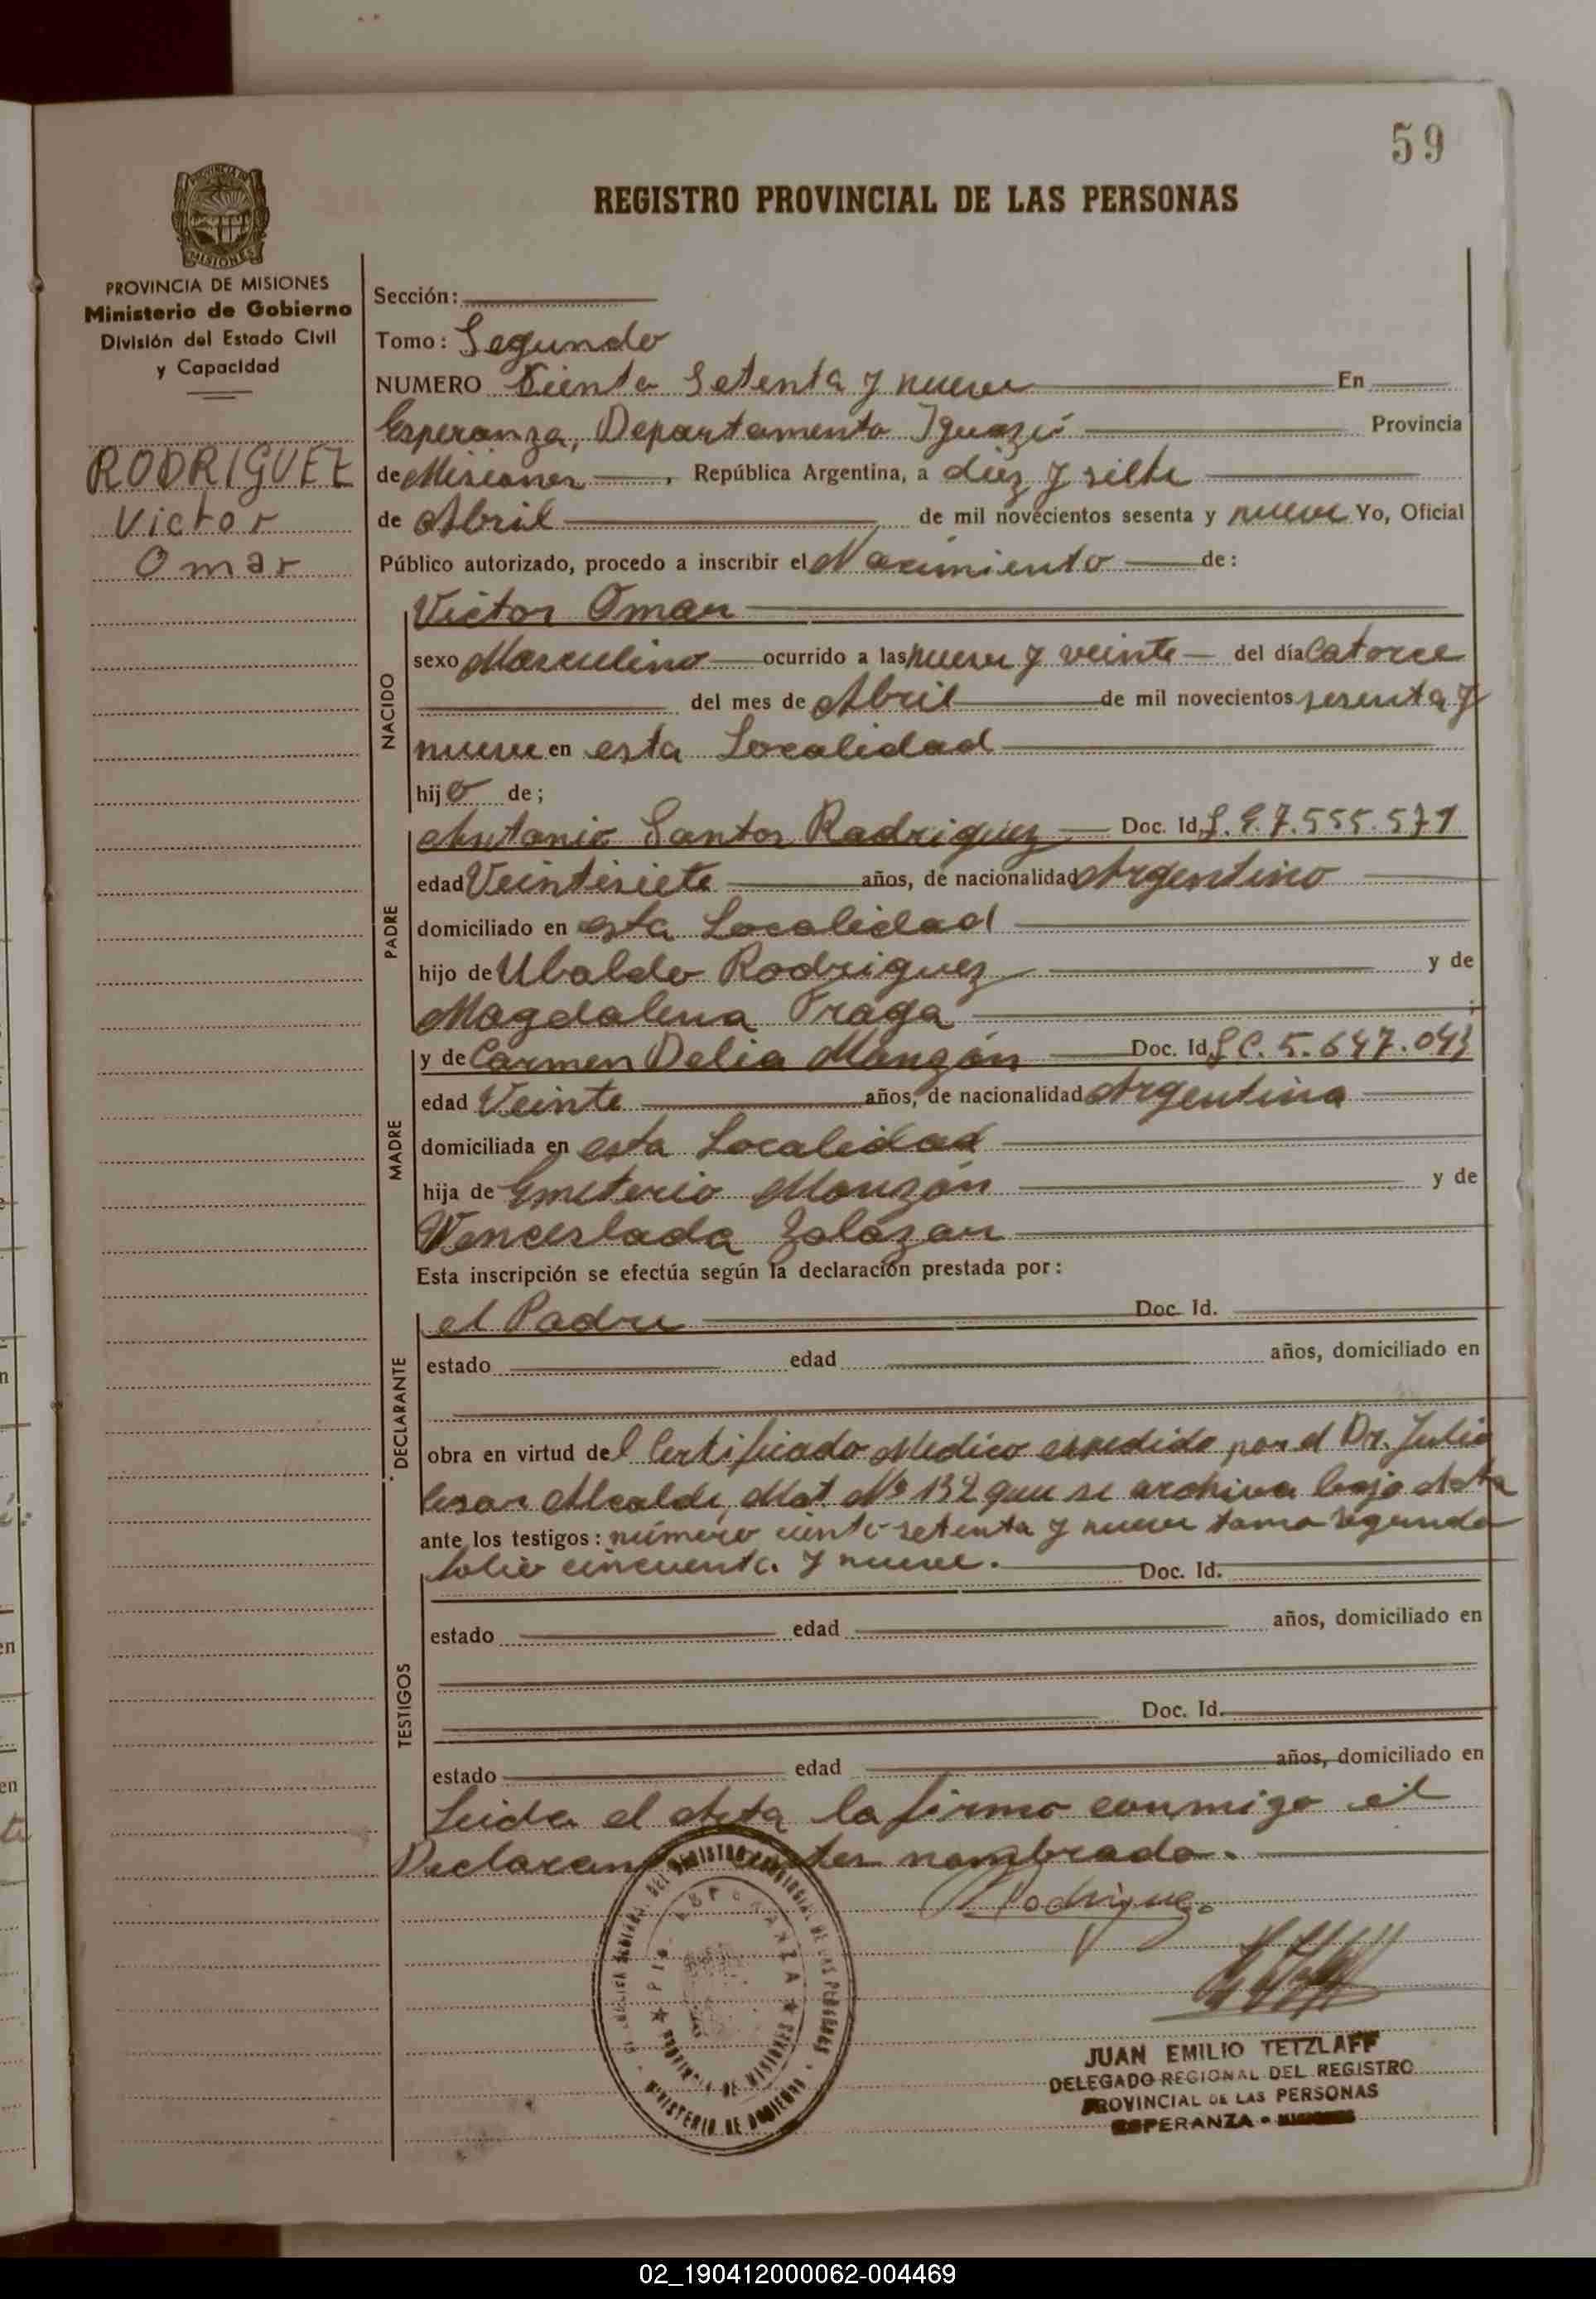 59
REGISTRO PROVINCIAL DE LAS PERSONAS
PROVINCIA DE MISIONES
Ministerio de Gobierno
División del Estado Civil
y Capacidad
RODRIGUEZ
Victor
Omar
Sección:
Tomo: Segundo
NUMERO Ciento Setenta y nueve En
Esperanza, Departamento Iguazú Provincia
de Misiones, República Argentina, a diez y siete
de Abril de mil novecientos sesenta y nueve Yo, Oficial
Público autorizado, procedo a inscribir el Nacimiento de:
NACIDO
Victor Omar
sexo Masculino ocurrido a las nueve y veinte del día Catorce
del mes de Abril de mil novecientos sesenta y
nueve en esta Localidad
hijo de;
PADRE
Antonio Santos Rodriguez Doc. Id. L.E. 7.555.571
edad Veintisiete años, de nacionalidad Argentino
domiciliado en esta Localidad
hijo de Ubaldo Rodriguez y de
Magdalena Fraga;
MADRE
y de Carmen Delia Monzón Doc. Id. L C. 5.647.043
edad Veinte años, de nacionalidad Argentina
domiciliada en esta Localidad
hija de Emeterio Monzón y de
Venceslada Zalazar
Esta inscripción se efectúa según la declaración prestada por:
DECLARANTE
el Padre Doc. Id.
estado edad años, domiciliado en
obra en virtud del Certificado Medico espedido por el Dr. Julio
Cesar Alcalde, Mat. Nº 132 que se archiva bajo Acta
ante los testigos: número ciento setenta y nueve tomo segundo
folio cincuenta y nueve. Doc. Id.
TESTIGOS
estado edad años, domiciliado en
Doc. Id.
estado edad años, domiciliado en
Leida el Acta la firma conmigo el
Declarante antes nombrado.
Rodriguez
REGISTRO PROVINCIAL DE LAS PERSONAS
ESPERANZA
PROVINCIA DE MISIONES
MINISTERIO DE GOBIERNO
JUAN EMILIO TETZLAFF
DELEGADO REGIONAL DEL REGISTRO
PROVINCIAL DE LAS PERSONAS
ESPERANZA - MISIONES
02_190412000062-004469